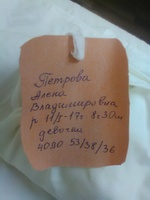 Петрова
Алена
Владимировна
р 11/5-17г 8ч30м
девочка
4080 53/38/36